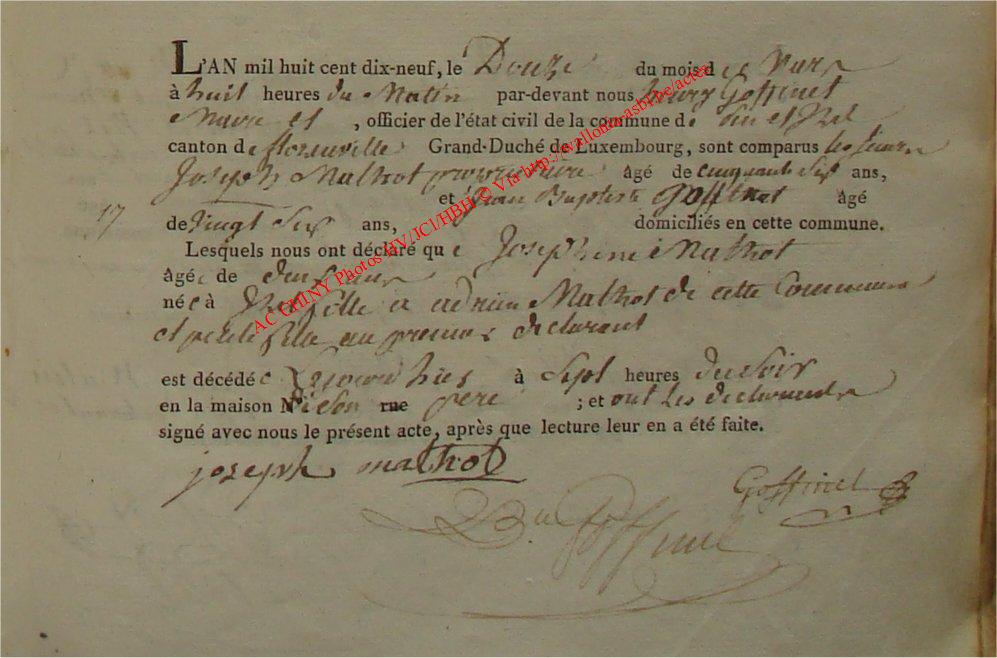 L'AN mil huit cent dix-neuf, le Douze du mois de Mars
à huit heures du Matin par-devant nous henry Goffinet
Maire et , officier de l'état civil de la commune de
canton de florenville Grand-Duché de Luxembourg, sont comparus les sieurs
Joseph Mathot propriétaire âgé de cinquante six ans,
et jean Baptiste Goffinet âgé
17
de vingt six ans, domiciliés en cette commune.
Lesquels nous ont déclaré que Josephine Mathot
âgée de deux ans
née à fille a adrien Mathot de cette Commune
et petite fille au premier declarant
est décédée hier à Sept heures du Soir
en la maison N de son rue pere ; et ont les declarants
signé avec nous le présent acte, après que lecture leur en a été faite.
joseph mathot
Goffinet
B. Goffinet
AC CHINY Photos HV/JCl/HBH © Via http://wallonia-asbl.be/actes